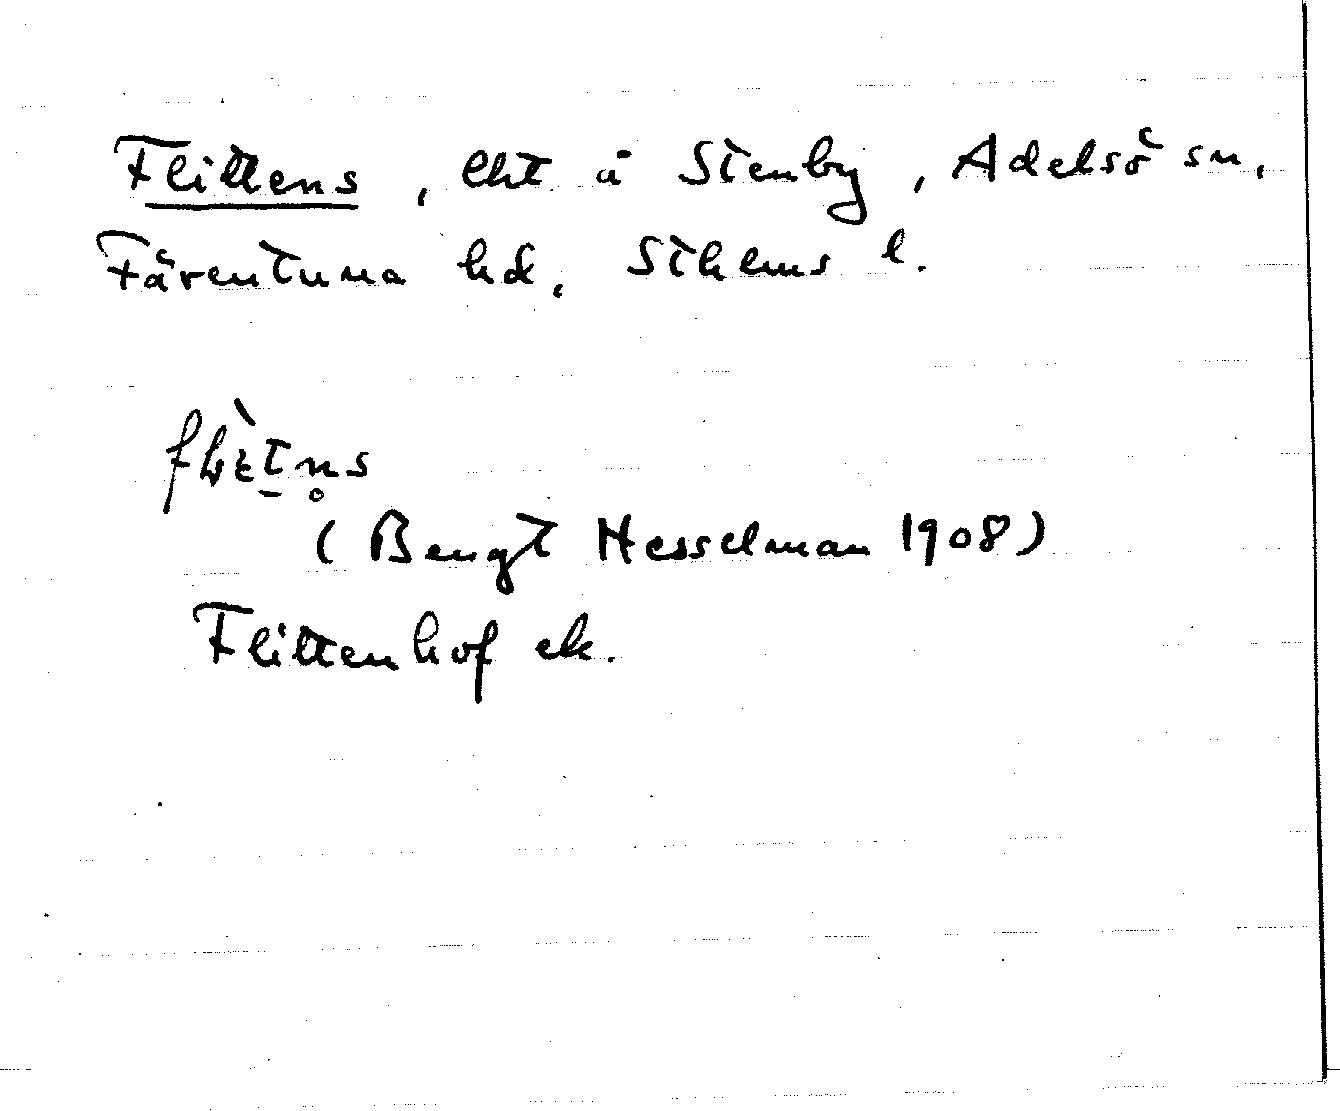 Flittens, lht å Stenby, Adelsö sn,
Färentuna hd, Sthlms l.
(Bengt Hesselman 1908)
Flittenhof ek.